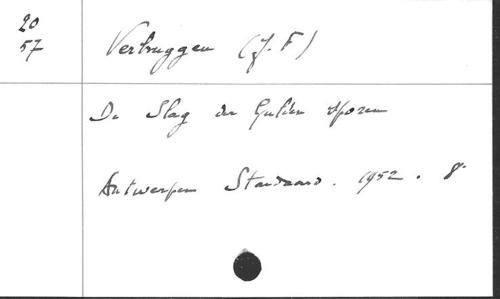 20
57
Verbruggen (J. F)
De Slag der Gulden sporen
Antwerpen Standaard. 1952. 8°